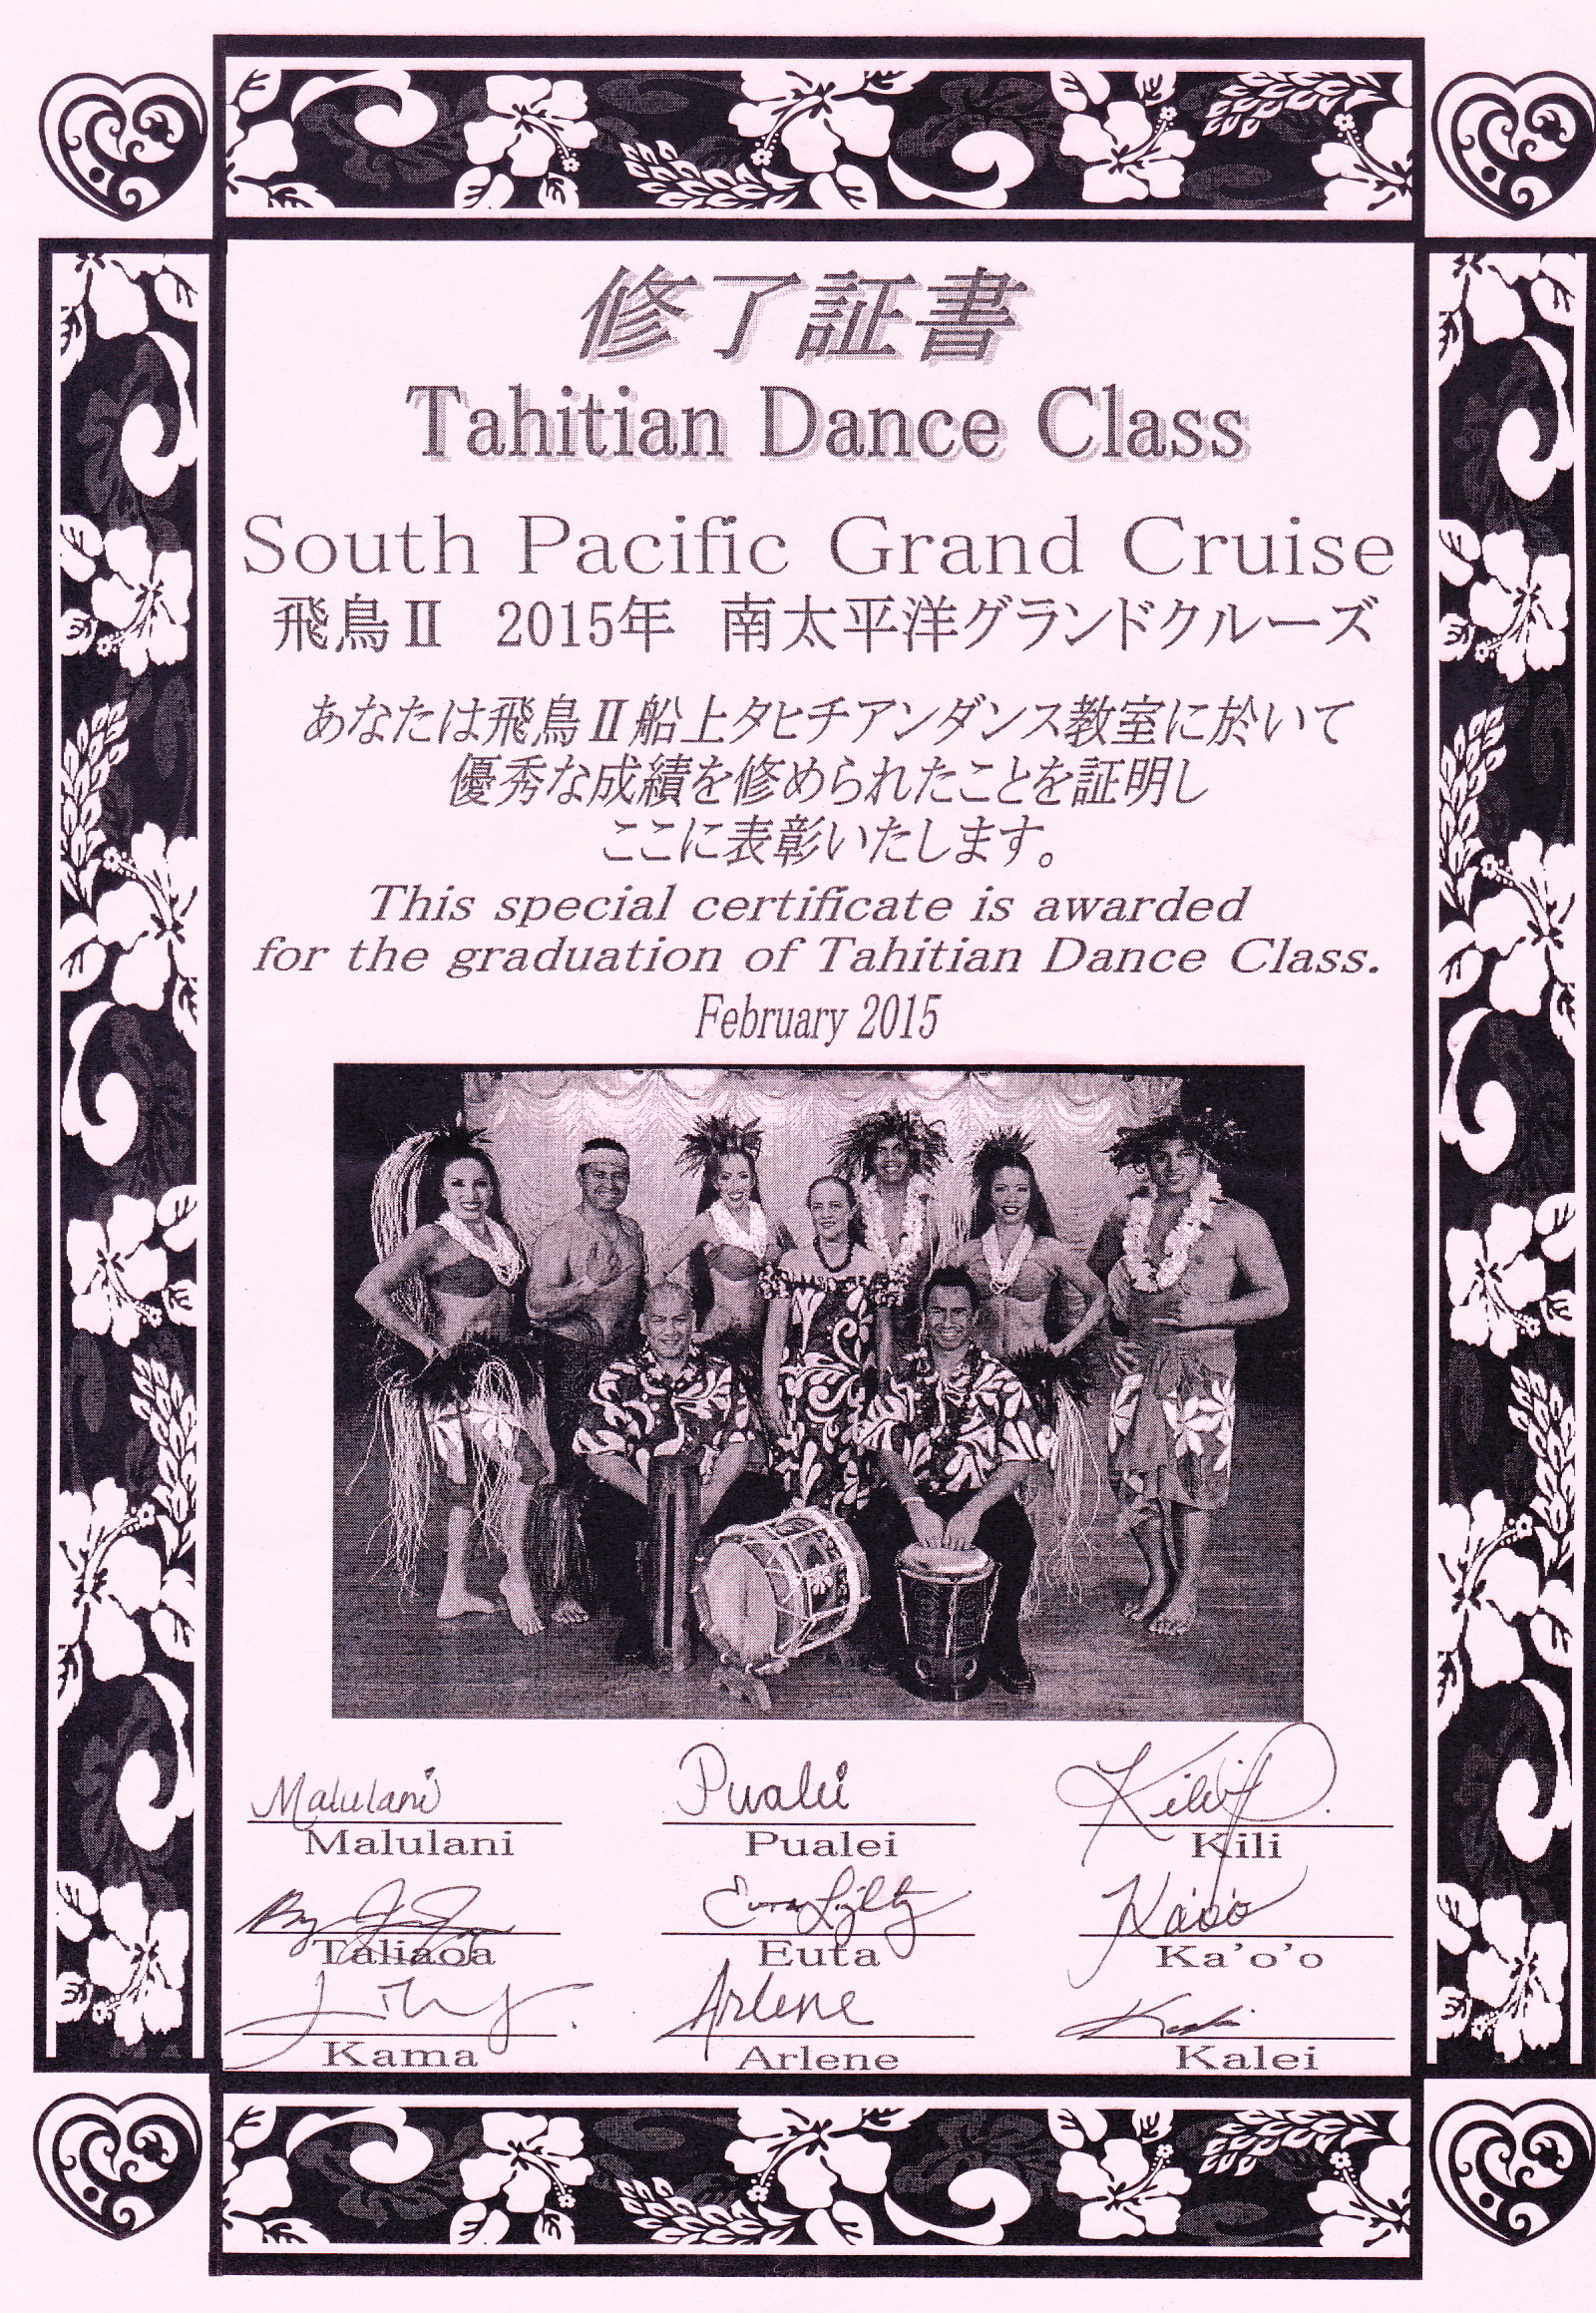 修了証書
Tahitian Dance Class
South Pacific Grand Cruise
飛鳥Ⅱ　2015年　南太平洋グランドクルーズ
あなたは飛鳥Ⅱ船上タヒチアンダンス教室に於いて
優秀な成績を修められたことを証明し
ここに表彰いたします。
This special certificate is awarded
for the graduation of Tahitian Dance Class.
February 2015
Malulani Pualei Kili
Malulani Pualei Kili
Ka'o'o
Taliaoa Euta Ka’o’o
Arlene
Kama Arlene Kalei